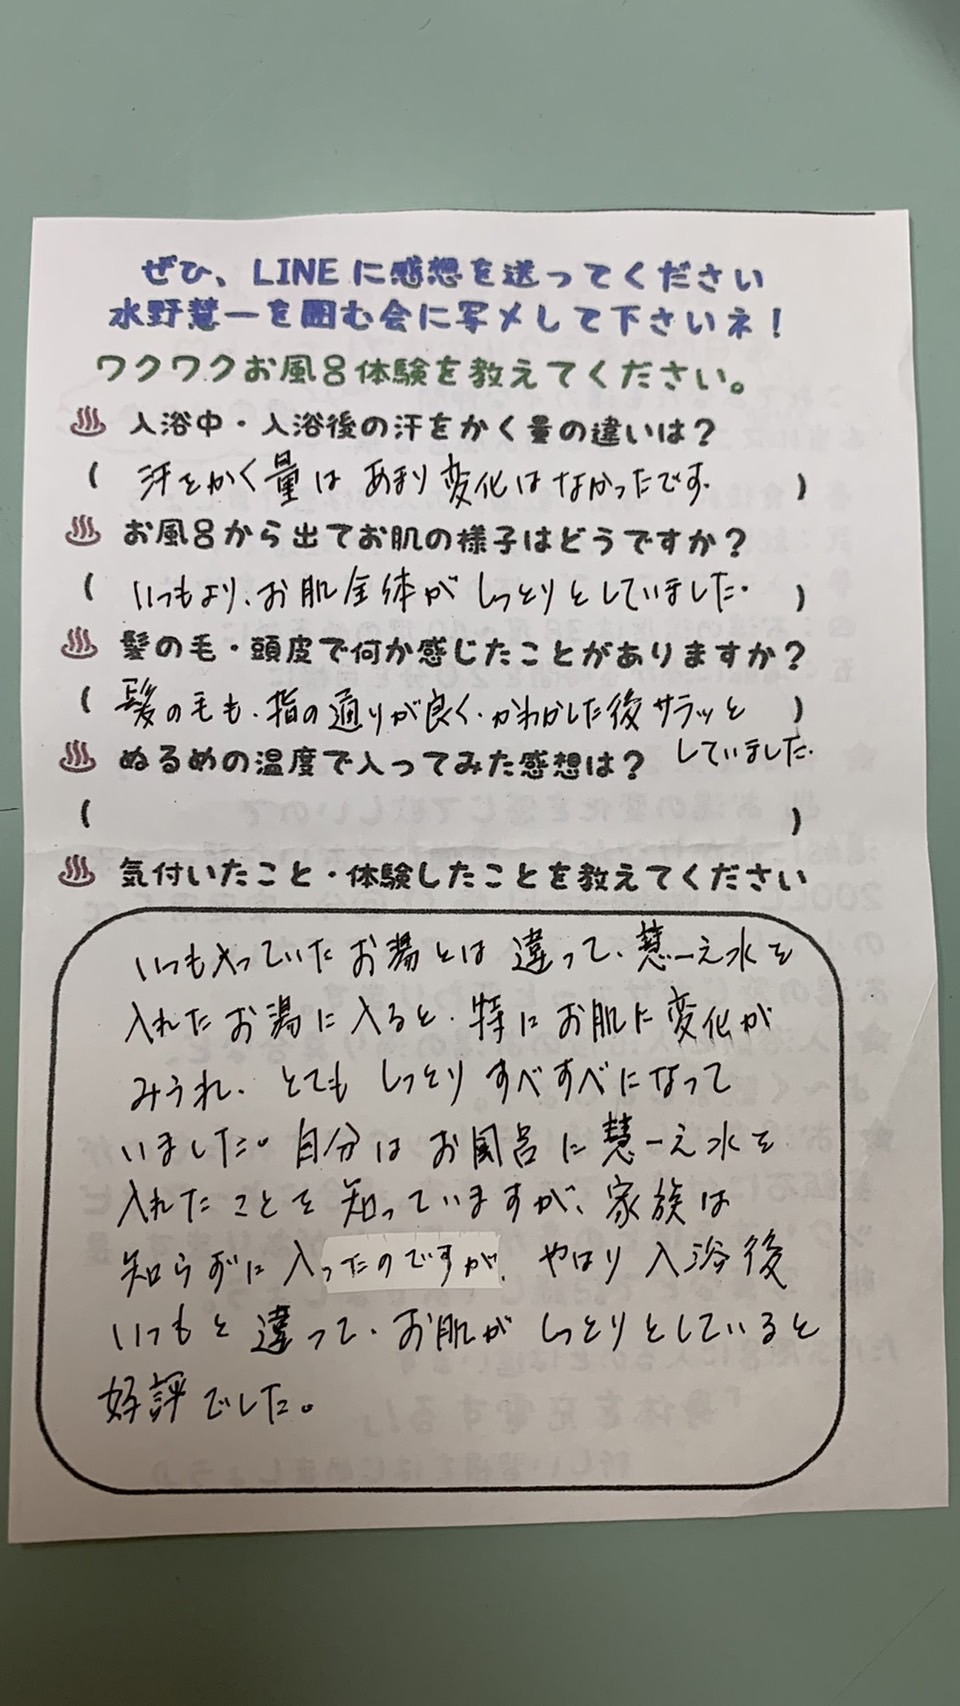 ぜひ、LINEに感想を送ってください
水野慧一を囲む会に写メして下さいネ！
ワクワクお風呂体験を教えてください。
♨ 入浴中・入浴後の汗をかく量の違いは？
( 汗をかく量は あまり変化はなかったです。 )
♨ お風呂から出てお肌の様子はどうですか？
( いつもより、お肌全体が しっとりとしていました。 )
♨ 髪の毛・頭皮で何か感じたことがありますか？
( 髪の毛も、指の通りが良く、かわかした後サラッと )
していました。
♨ ぬるめの温度で入ってみた感想は？
( )
♨ 気付いたこと・体験したことを教えてください
いつも入っていたお湯とは違って、慧一え水を
入れたお湯に入ると、特にお肌に変化が
みうれ、とてもしっとりすべすべになって
いました。自分はお風呂に慧一え水を
入れたことを知っていますが、家族は
知らずに入ったのですが、やはり入浴後
いつもと違って、お肌がしっとりとしていると
好評でした。